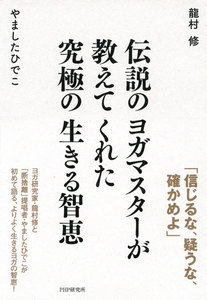 龍村 修
やましたひでこ
伝説のヨガマスターが
教えてくれた
究極の生きる智恵
「信じるな、疑うな、
確かめよ」
ヨガ研究家・龍村修と
「断捨離」提唱者・やましたひでこが
初めて語る、よりよく生きるヨガの智恵!
PHP研究所